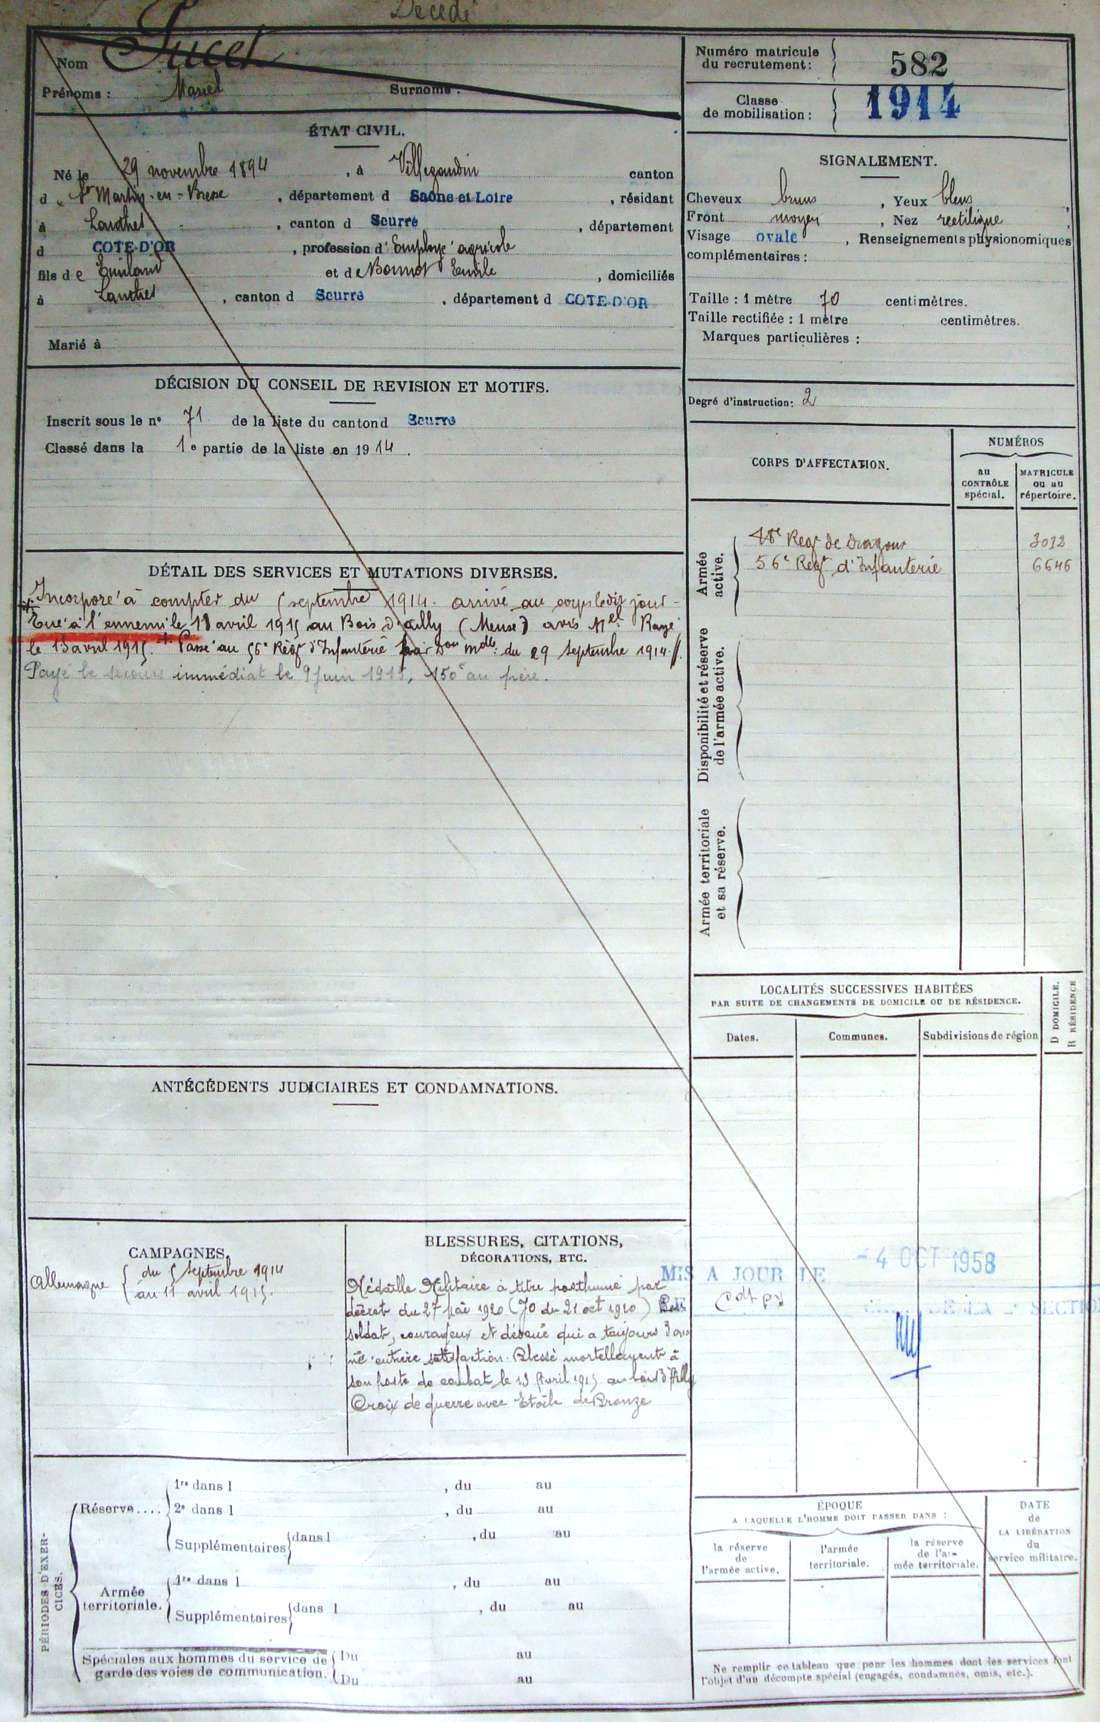 Décédé
Nom Pucet
Prénoms : Marcel Surnoms :
ÉTAT CIVIL.
Né le 29 novembre 1894, à Villegaudin canton
d St Martin-en-Bresse, département d Saône et Loire, résidant
à Lanthes, canton d Seurre, département
d COTE-D'OR, profession d'Employé agricole
fils de Emiland et de Bonnot Emilie, domiciliés
à Lanthes, canton d Seurre, département d COTE-D'OR
Marié à
DÉCISION DU CONSEIL DE REVISION ET MOTIFS.
Inscrit sous le n° 71 de la liste du canton d Seurre
Classé dans la 1e partie de la liste en 1914.
DÉTAIL DES SERVICES ET MUTATIONS DIVERSES.
Incorporé à compter du 5 septembre 1914. arrivé au corps le dit jour-
Tué à l'ennemi le avril 1915 au Bois d'Ailly (Meuse) avis
le 13 avril 1915. + Passé au 56e Régt d'Infanterie par du 29 septembre 1914
Payé le secours immédiat le 9 juin 1915, 150 au père.
ANTÉCÉDENTS JUDICIAIRES ET CONDAMNATIONS.
CAMPAGNES.
Allemagne { du 5 septembre 1914
au 11 avril 1915.
BLESSURES, CITATIONS,
DÉCORATIONS, ETC.
Médaille Militaire à titre posthume par
décret du 27 1920 (JO du 21 oct 1920)
soldat, courageux et dévoué qui a toujours don
né entière satisfaction. Blessé mortellement à
son poste de combat, le 13 Avril 1915 au bois d'Ailly
Croix de guerre avec Etoile de Bronze
PÉRIODES D'EXER-
CICES.
Réserve....
1re dans l , du au
2e dans l , du au
Supplémentaires { dans l , du au
Armée
territoriale.
1re dans l , du au
Supplémentaires { dans l , du au
Spéciales aux hommes du service de
garde des voies de communication.
Du au
Du au
Numéro matricule
du recrutement : 582
Classe
de mobilisation : 1914
SIGNALEMENT.
Cheveux bruns, Yeux bleus,
Front moyen, Nez rectiligne,
Visage ovale, Renseignements physionomiques
complémentaires :
Taille : 1 mètre 70 centimètres.
Taille rectifiée : 1 mètre centimètres.
Marques particulières :
Degré d'instruction : 2
CORPS D'AFFECTATION.
NUMÉROS
au
CONTRÔLE
spécial.
MATRICULE
ou au
répertoire.
Armée
active.
Régt de Dragons 3012
56e Régt d'Infanterie 6646
Disponibilité et réserve
de l'armée active.
Armée territoriale
et sa réserve.
LOCALITÉS SUCCESSIVES HABITÉES
PAR SUITE DE CHANGEMENTS DE DOMICILE OU DE RÉSIDENCE.
D DOMICILE.
R RÉSIDENCE
Dates. Communes. Subdivisions de région
MIS A JOUR LE - 4 OCT 1958
DE LA SECTION
ÉPOQUE
A LAQUELLE L'HOMME DOIT PASSER DANS :
la réserve
de
l'armée active.
l'armée
territoriale.
la réserve
de l'ar-
mée territoriale.
DATE
de
LA LIBÉRATION
du
service militaire.
Ne remplir ce tableau que pour les hommes dont les services font
l'objet d'un décompte spécial (engagés, condamnés, omis, etc.).